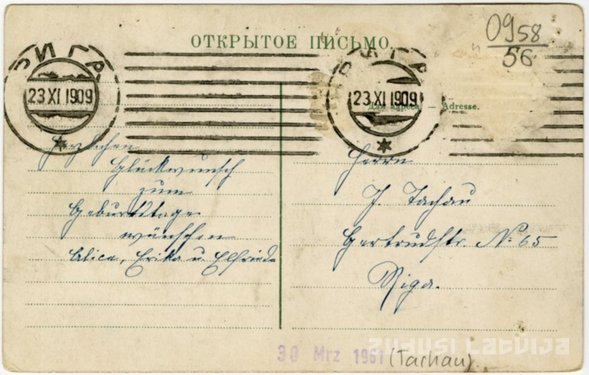 ОТКРЫТОЕ ПИСЬМО.
0958
56
РИГА
23 XI 1909
РИГА
23 XI 1909
Adresse.
Herzlichen
Glückwunsch
zum
Geburtstage
wünschen
Alice, Erika u. Elfriede
Herrn
J. Tachau
Gertrudstr. No 65
Riga.
30 Mrz 1961
(Tachau)
ZUDUSI LATVIJA